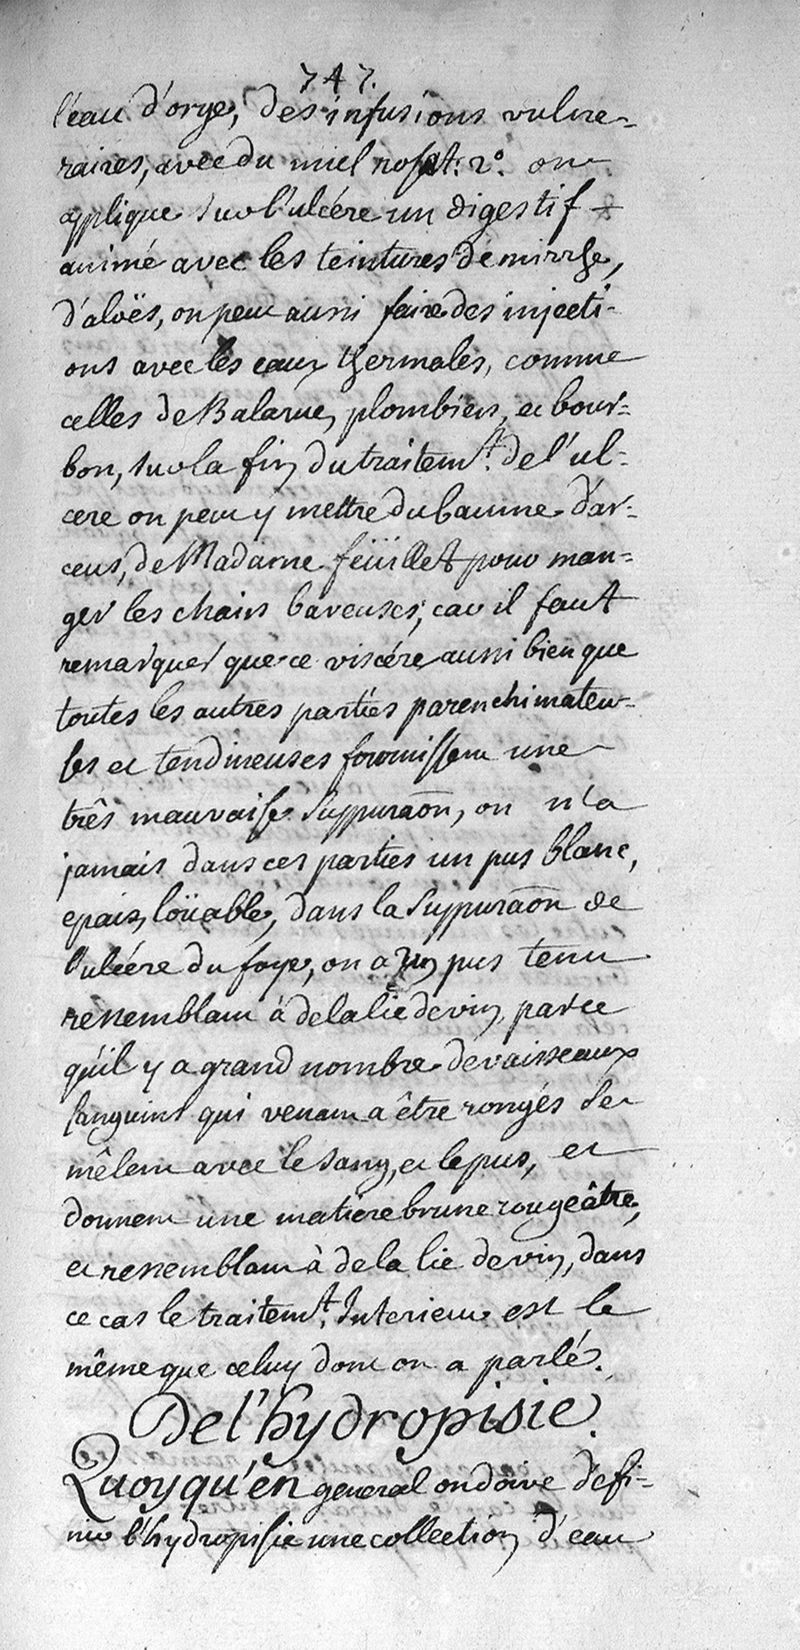 747.
l'eau d'orge, des infusions vulne-
raires, avec du miel rosat: 2.° on
applique sur l'ulcére un digestif
animé avec les teintures de mirrhe,
d'aloës, on peut aussi faire des injecti-
ons avec les eaux thermales, comme
celles de Balaruc, plombiers, et bour-
bon, sur la fin du traitem.t de l'ul-
cere on peut y mettre du baume d'ar-
ceus, de Madame feüillet pour man-
ger les chairs baveuses, car il faut
remarquer que ce viscére aussi bien que
toutes les autres parties parenchimateu-
ses et tendineuses fournissent une
três mauvaise suppuraōn, on n'a
jamais dans ces parties un pus blanc,
epais, loüable, dans la suppuraōn de
l'ulcére du foye, on a un pus tenu
ressemblant à de la lie de vin, parce
qu'il y a grand nombre de vaisseaux
sanguins qui venant a être rongés se
mêlent avec le sang, et le pus, et
donnent une matiere brune rougeâtre,
et ressemblant à de la lie de vin, dans
ce cas le traitem.t Interieur est le
même que celuy dont on a parlé.
De l'hydropisie.
Quoyqu'en general on doive defi-
nir l'hydropisie une collection d'eau